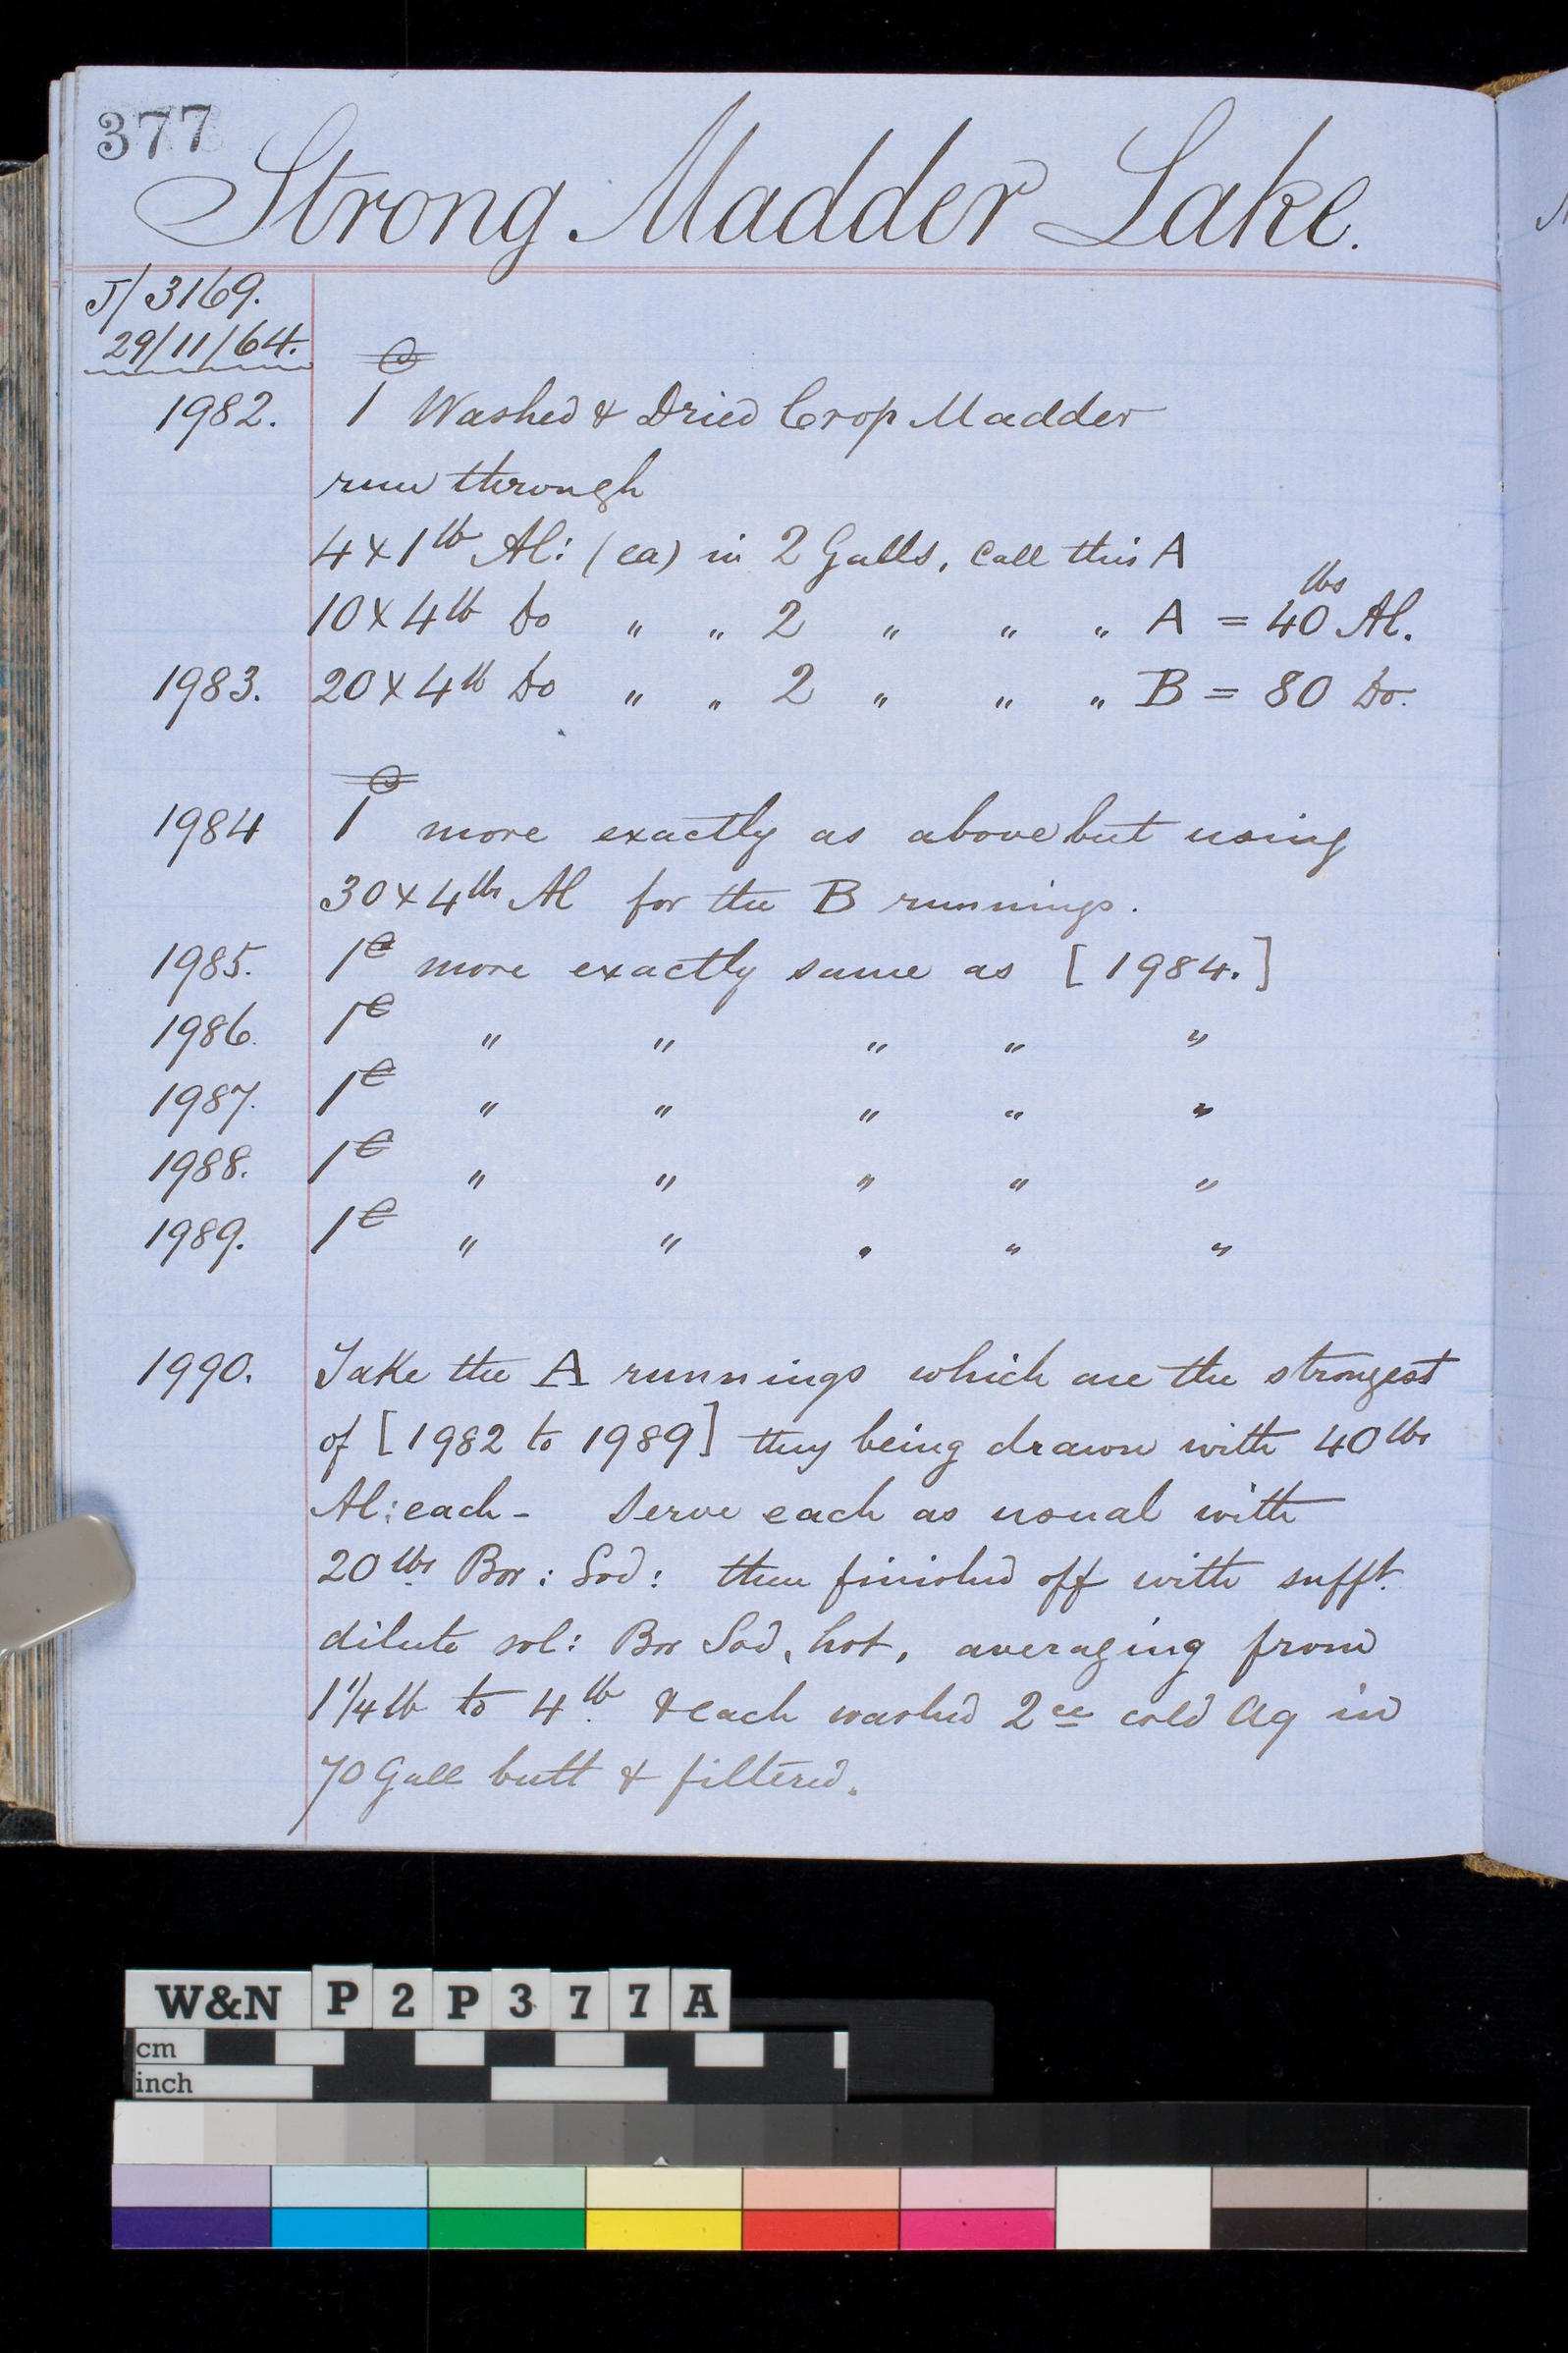 377
Strong Madder Lake.
J/3169.
29/11/64.
1982. 1 C Washed & Dried Crop Madder
run through
4x1lb Al: (ea) in 2 Galls, Call this A
10x4lb Do " " 2 " " " A = 40 lbs Al.
1983. 20x4lb Do " " 2 " " " B = 80 Do.
1984 1 C more exactly as above but using
30x4lbs Al for the B runnings.
1985. 1C more exactly same as [1984.]
1986. 1C " " " " "
1987. 1C " " " " "
1988. 1C " " " " "
1989. 1C " " " " "
1990. Take the A runnings which are the strongest
of [1982 to 1989] they being drawn with 40 lbs
Al: each - Serve each as usual with
20 lbs Bor: Sod: then finished off with sufft.
dilute sol: Bor Sod, hot, averaging from
1 1/4 lb to 4 lb & each washed 2ce cold Aq in
70 Gall butt & filtered.
W&N P2P377A
cm
inch